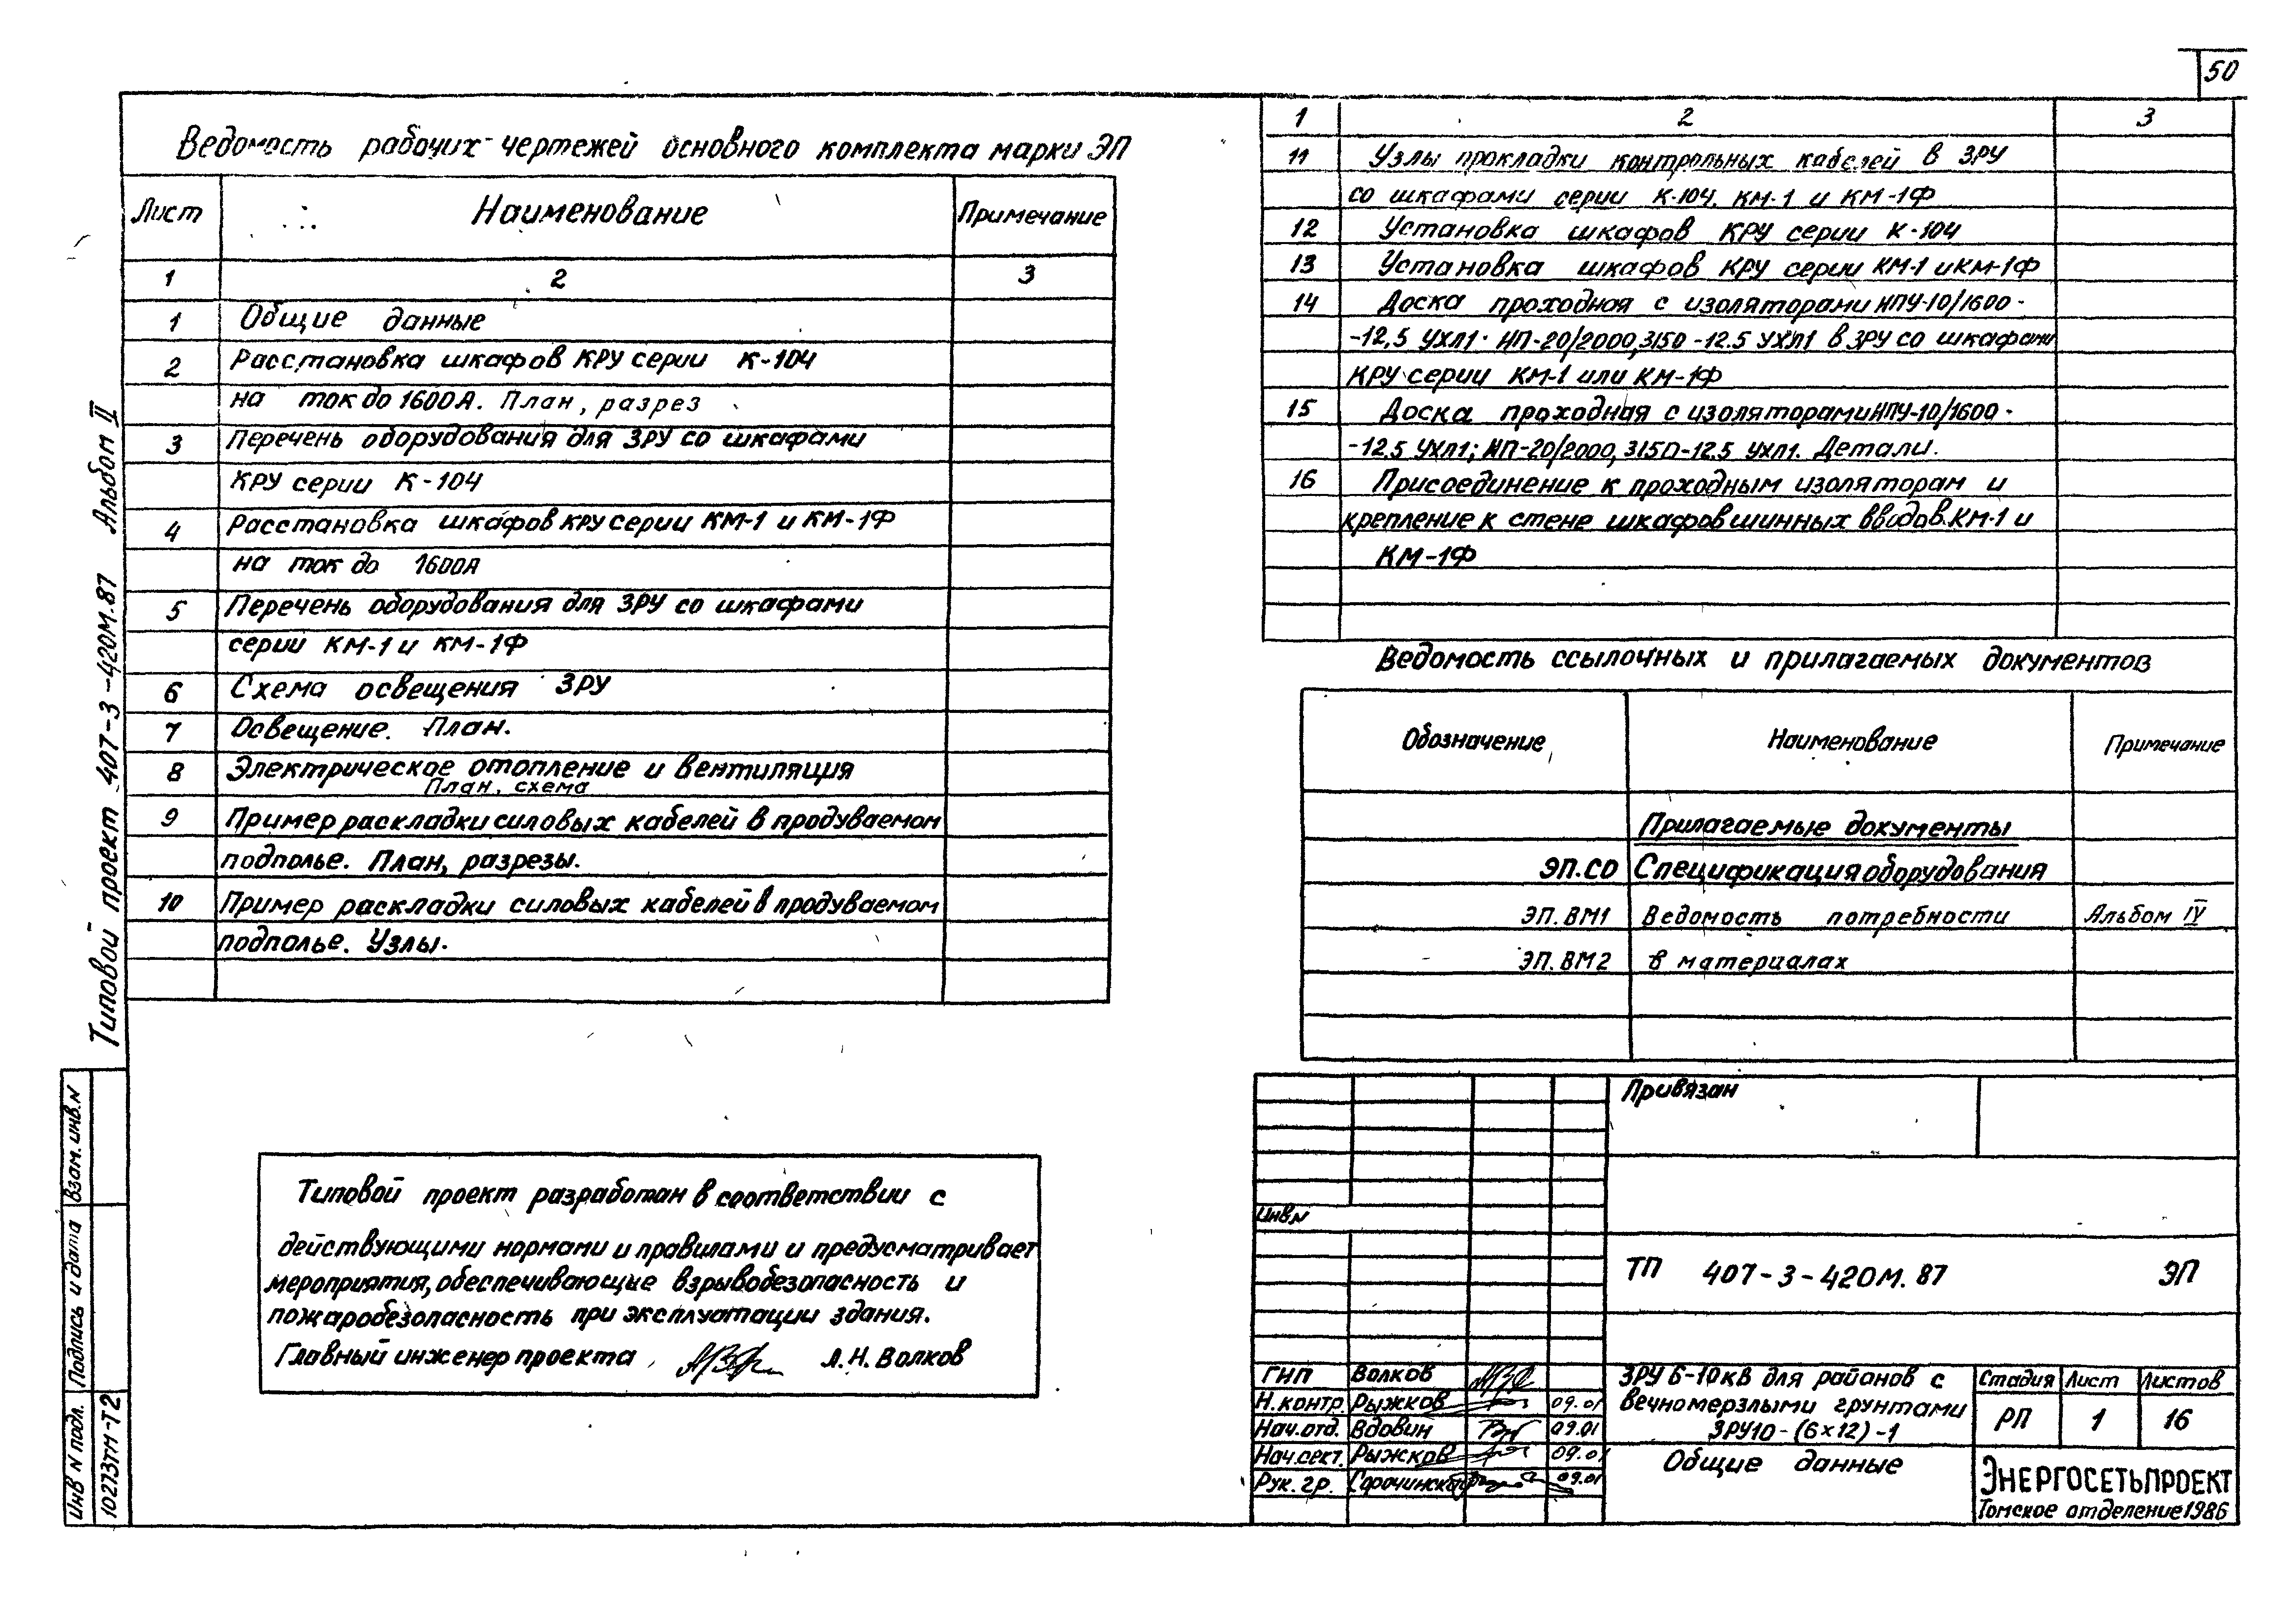 50
Ведомость рабочих чертежей основного комплекта марки ЭП
Лист Наименование Примечание
1 2 3
1 Общие данные
2 Расстановка шкафов КРУ серии К-104
на ток до 1600А. План, разрез
3 Перечень оборудования для ЗРУ со шкафами
КРУ серии К-104
4 Расстановка шкафов КРУ серии КМ-1 и КМ-1Ф
на ток до 1600А
5 Перечень оборудования для ЗРУ со шкафами
серии КМ-1 и КМ-1Ф
6 Схема освещения ЗРУ
7 Освещение. План.
8 Электрическое отопление и вентиляция
План, схема
9 Пример раскладки силовых кабелей в продуваемом
подполье. План, разрезы.
10 Пример раскладки силовых кабелей в продуваемом
подполье. Узлы.
1 2 3
11 Узлы прокладки контрольных кабелей в ЗРУ
со шкафами серии К-104, КМ-1 и КМ-1Ф
12 Установка шкафов КРУ серии К-104
13 Установка шкафов КРУ серии КМ-1 и КМ-1Ф
14 Доска проходная с изоляторами ИПУ-10/1600-
-12,5 УХЛ1; ИП-20/2000,3150-12.5 УХЛ1 в ЗРУ со шкафами
КРУ серии КМ-1 или КМ-1Ф
15 Доска проходная с изоляторами ИПУ-10/1600-
-12.5 УХЛ1; ИП-20/2000, 3150-12.5 УХЛ1. Детали.
16 Присоединение к проходным изоляторам и
крепление к стене шкафов шинных вводов.КМ-1 и
КМ-1Ф
Ведомость ссылочных и прилагаемых документов
Обозначение Наименование Примечание
Прилагаемые документы
ЭП.СО Спецификация оборудования
ЭП.ВМ1 Ведомость потребности Альбом IV
ЭП.ВМ2 в материалах
Типовой проект разработан в соответствии с
действующими нормами и правилами и предусматривает
мероприятия, обеспечивающие взрывобезопасность и
пожаробезопасность при эксплуатации здания.
Главный инженер проекта А.Н. Волков
Привязан
Инв.N
ТП 407-3-420М.87 ЭП
ГИП Волков
Н.контр. Рыжков 09.01
Нач.отд. Вдовин 09.01
Нач.сект. Рыжков 09.01
Рук.гр. Сорочинская 09.01
ЗРУ 6-10кВ для районов с
вечномерзлыми грунтами
ЗРУ10-(6×12)-1
Общие данные
Стадия Лист Листов
РП 1 16
ЭНЕРГОСЕТЬПРОЕКТ
Томское отделение 1986
Типовой проект 407-3-420М.87 Альбом II
Инв N подл. Подпись и дата Взам.инв.N
10273тм-Т2